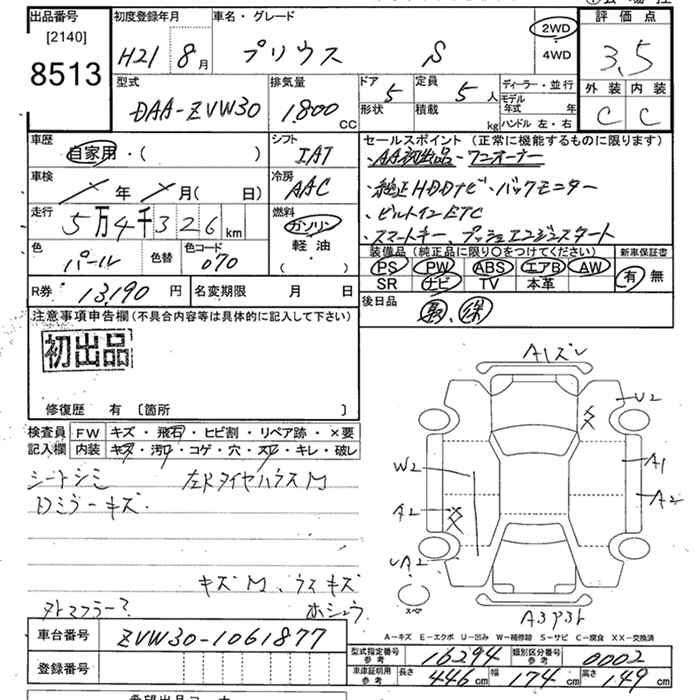 出品番号 初度登録年月 車名・グレード 2WD 評価点
[2140] H21 8月 プリウス S 4WD 3.5
8513 外装 内装
型式 排気量 ドア 5 定員 5人 ディーラー・並行 C C
DAA-ZVW30 1800 CC 形状 積載 kg モデル年式 年
ハンドル 左・右
車歴 シフト セールスポイント (正常に機能するものに限ります)
自家用・( ) IAT ・AA初出品・ワンオーナー
車検 年 月( 日) 冷房 AAC ・純正HDDナビ・バックモニター
走行 5万4千326km 燃料 ・ビルトインETC
ガソリン ・スマートキー、プッシュエンジンスタート
色 パール 色替 色コード 070 軽油 ・( )
装備品 (純正品に限り〇をつけてください) 新車保証書
PS PW ABS エアB AW 有 無
R券 13,190円 名変期限 月 日 SR ナビ TV 本革
注意事項申告欄(不具合内容等は具体的に記入して下さい) 後日品
初出品
修復歴 有 [箇所 ]
A1ズレ
U2
検査員 FW キズ・飛石・ヒビ割・リペア跡・×要
記入欄 内装 キズ・汚れ・コゲ・穴・スレ・キレ・破レ
シートシミ W2 A1
Dミラーキズ A2 A2
キズM、ウスキズ
ホシュウ スペア
A-キズ E-エクボ U-凹み W-補修跡 S-サビ C-腐食 XX-交換済
車台番号 ZVW30-1061877
型式指定番号 参考 16294 類別区分番号 参考 0002
登録番号 車庫証明用 参考 長さ 446cm 幅 174cm 高さ 149cm